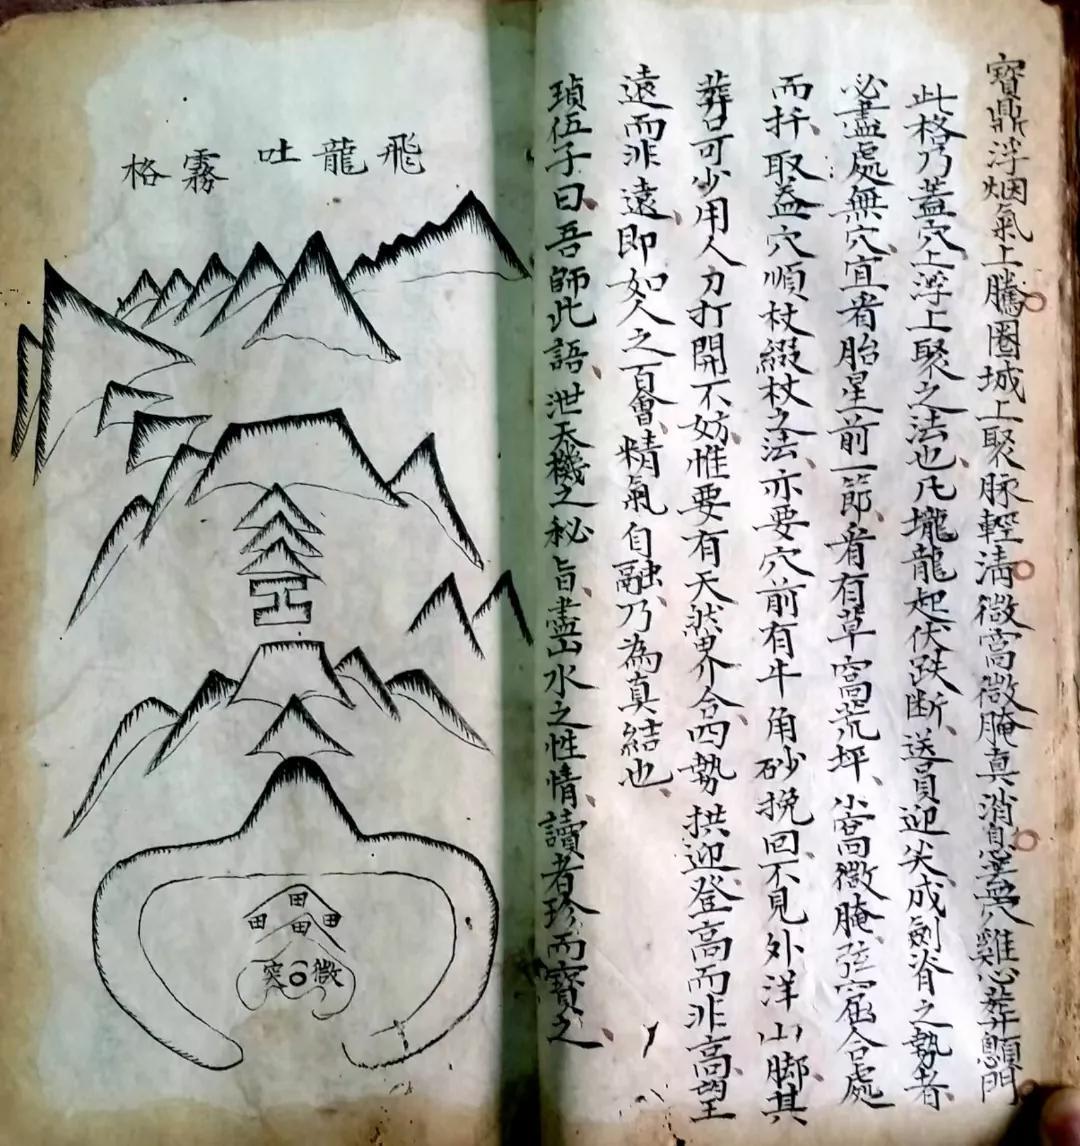 寶鼎浮烟氣上騰圈城上聚脉輕清微窩微腌真消息無人雞心葬顖門
此格乃蓋穴上浮上聚之法也凡壠龍起伏跌断送員迎尖成劍脊之勢者
必盡處無穴宜看胎星前一節看有草窩荒坪、小窩微腌弦窟合處
而扦、取蓋穴順杖綴杖之法、亦要穴前有牛角砂挽回不見外洋山脚其
葬口可少用人力打開不妨惟要有天然界合四勢拱迎登高而非高望
遠而非遠、即如人之百會、精氣自融、乃為真結也
瑱伍子曰、吾師此語、泄天機之秘旨、盡山水之性情、讀者珍而寶之、
飛龍吐霧格
田
田 田 田
微 突